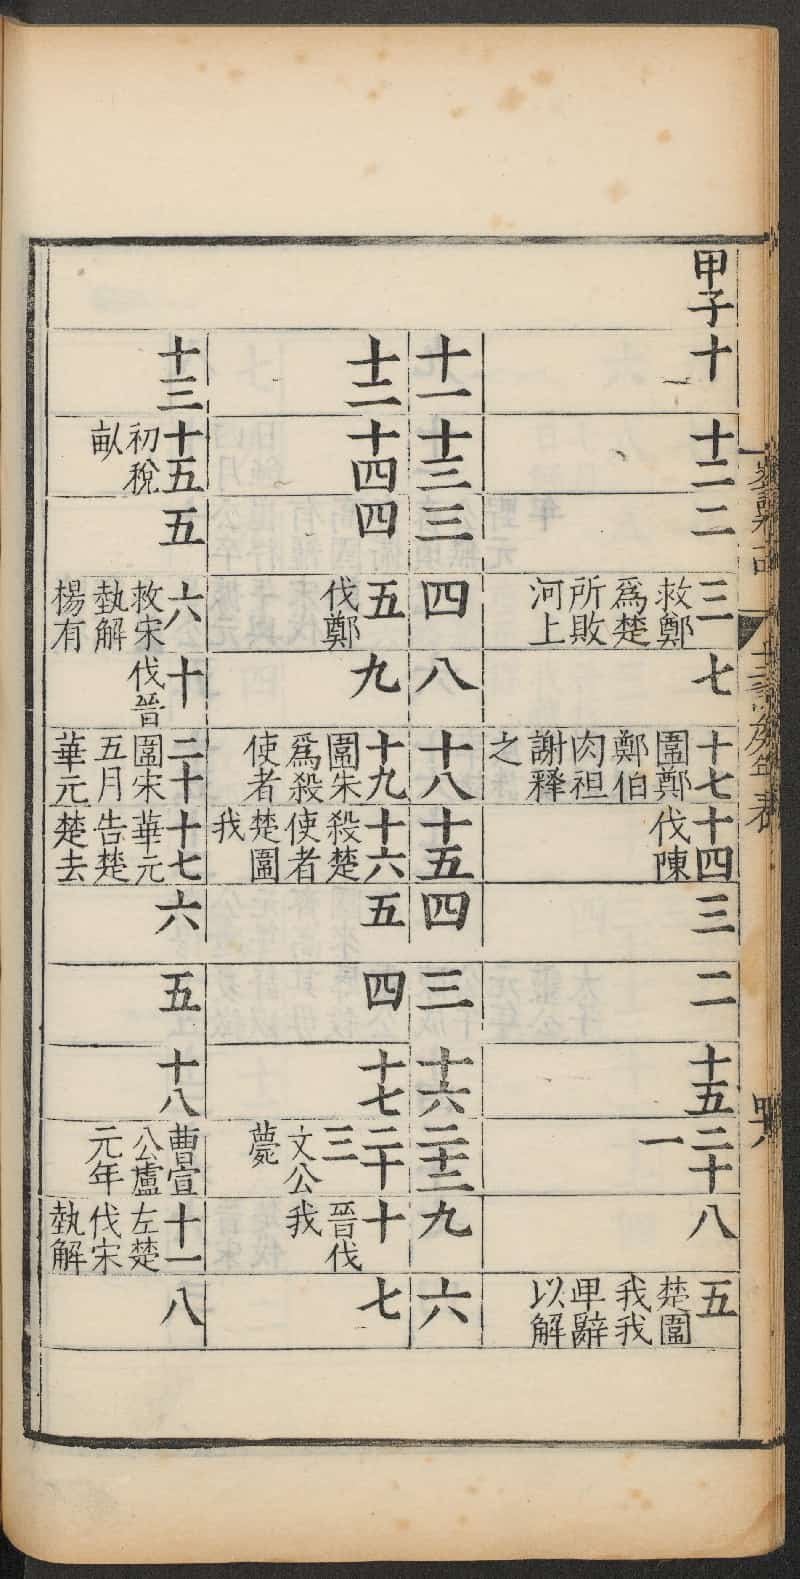 甲子
十
十二
二
三
救鄭
爲楚
所敗
河上
七
十七
圍鄭
鄭伯
肉袒
謝釋
之
十四
伐陳
三
二
十五
二十
一
八
五
楚圍
我我
卑辭
以解
十一
十三
三
四
八
十八
十五
四
三
十六
二十二
九
六
十二
十四
四
五
伐鄭
九
十九
圍朱
爲殺
使者
十六
殺楚
使者
楚圍
我
五
四
十七
二十
三
文公
薨
十
晉伐
我
七
十三
十五
初稅
畝
五
六
救宋
執解
楊有
十
伐晉
二十
圍宋
五月
華元
十七
華元
告楚
楚去
六
五
十八
曹宣
公盧
元年
十一
左楚
伐宋
執解
八